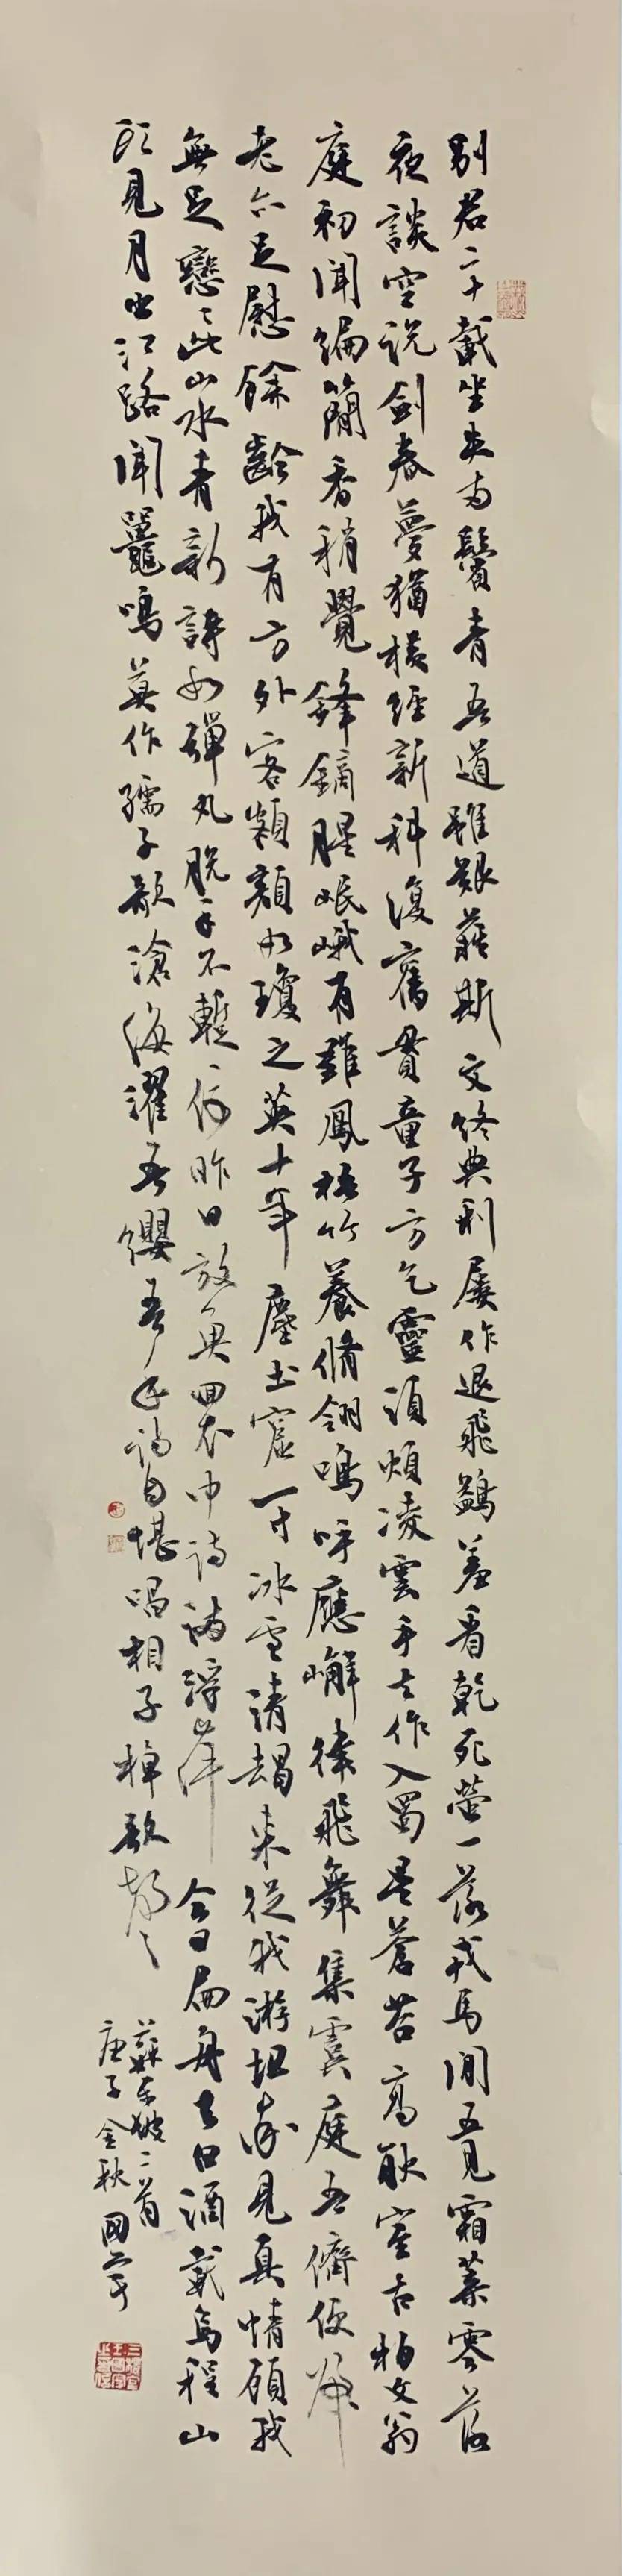 別君二十載坐失兩鬢青吾道雖艱斯文終典刑屢作退飛鷁羞看乾死螢一落戎馬間五見霜葉零
夜談空説劍春夢猶橫經新科復舊貫童子方乞靈須煩凌雲手去作入蜀星蒼苔高朕室古柏文翁
庭初聞編簡香稍覺鋒鏑腥岷峨有雛鳳梧竹養脩翎鳴呼應嶰律飛舞集虞庭吾儕便歸
老亦足慰餘齡我有方外客顏如瓊之英十年塵土窟一寸冰雪清朅來從我游坦率見真情顧我
無足戀戀此山水青新詩如彈丸脫手不暫停昨日放魚回衣巾詩滿浮萍今日扁舟去白酒載烏程山
頭見月出江路聞鼉鳴莫作孺子歌滄海濯吾纓吾詩自堪唱相子棹歌聲
蘇東坡二首
庚子金秋國